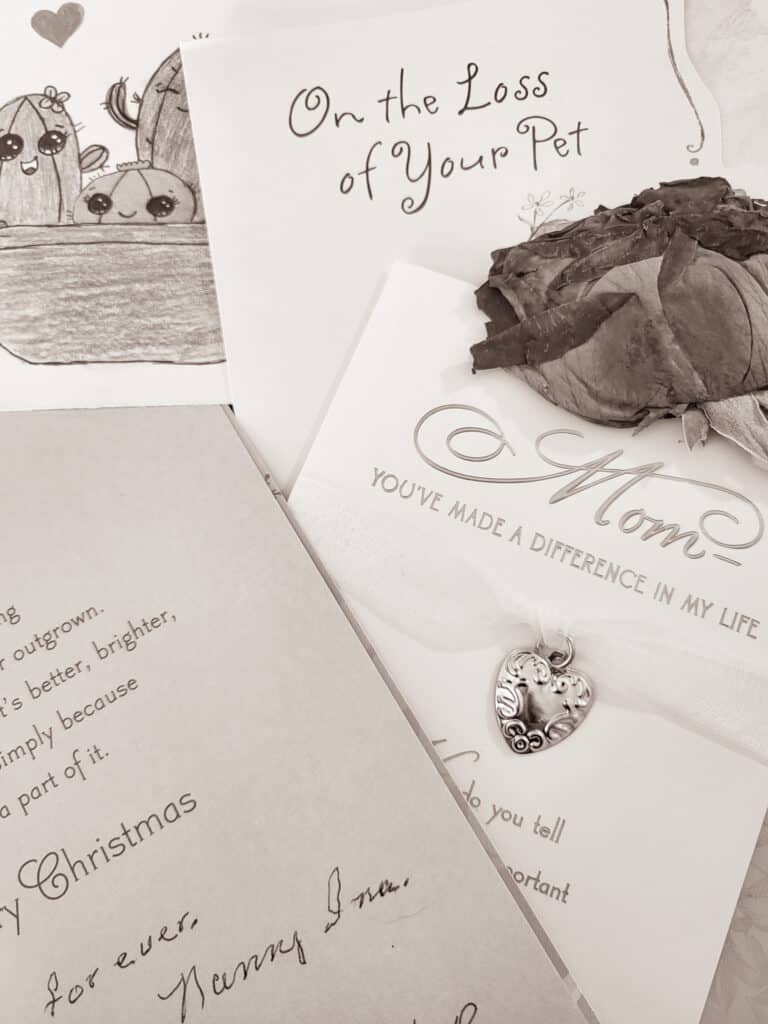 On the Loss
of Your Pet
Mom–
YOU'VE MADE A DIFFERENCE IN MY LIFE
do you tell
outgrown.
t's better, brighter,
simply because
a part of it.
Christmas
for ever.
Nanny Ina.